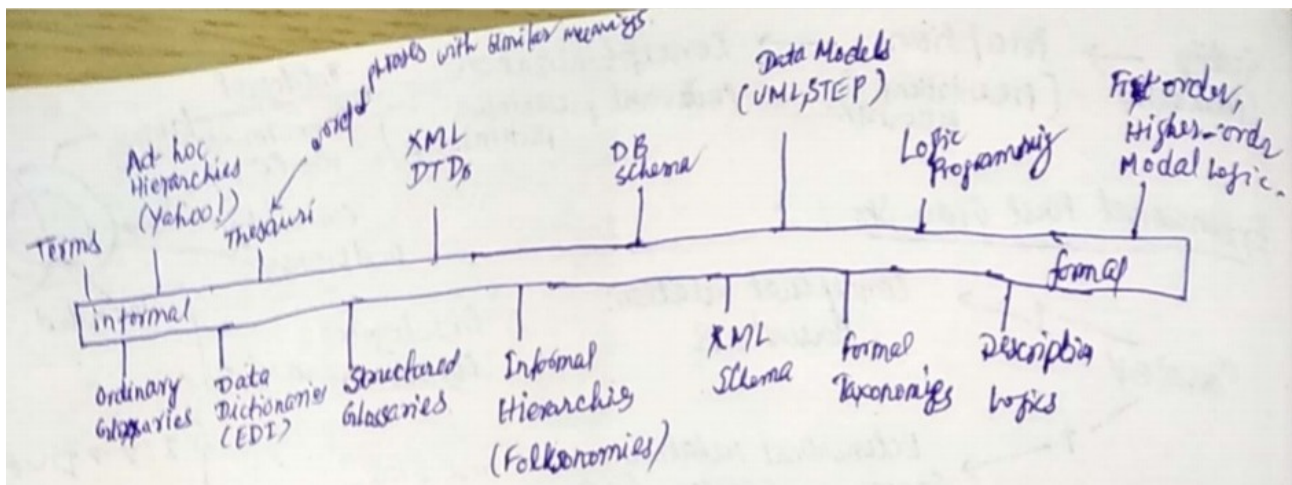 phrases with similar meanings.
Ad hoc
Hierarchies
(Yahoo!)
Terms
Thesauri
XML
DTDs
DB
Schema
Data Models
(UML, STEP)
Logic
Programming
First order,
Higher-order
Modal Logic.
informal
formal
Ordinary
Glossaries
Data
Dictionaries
(EDI)
Structured
Glossaries
Informal
Hierarchies
(Folksonomies)
XML
Schema
formal
Taxonomies
Description
Logics